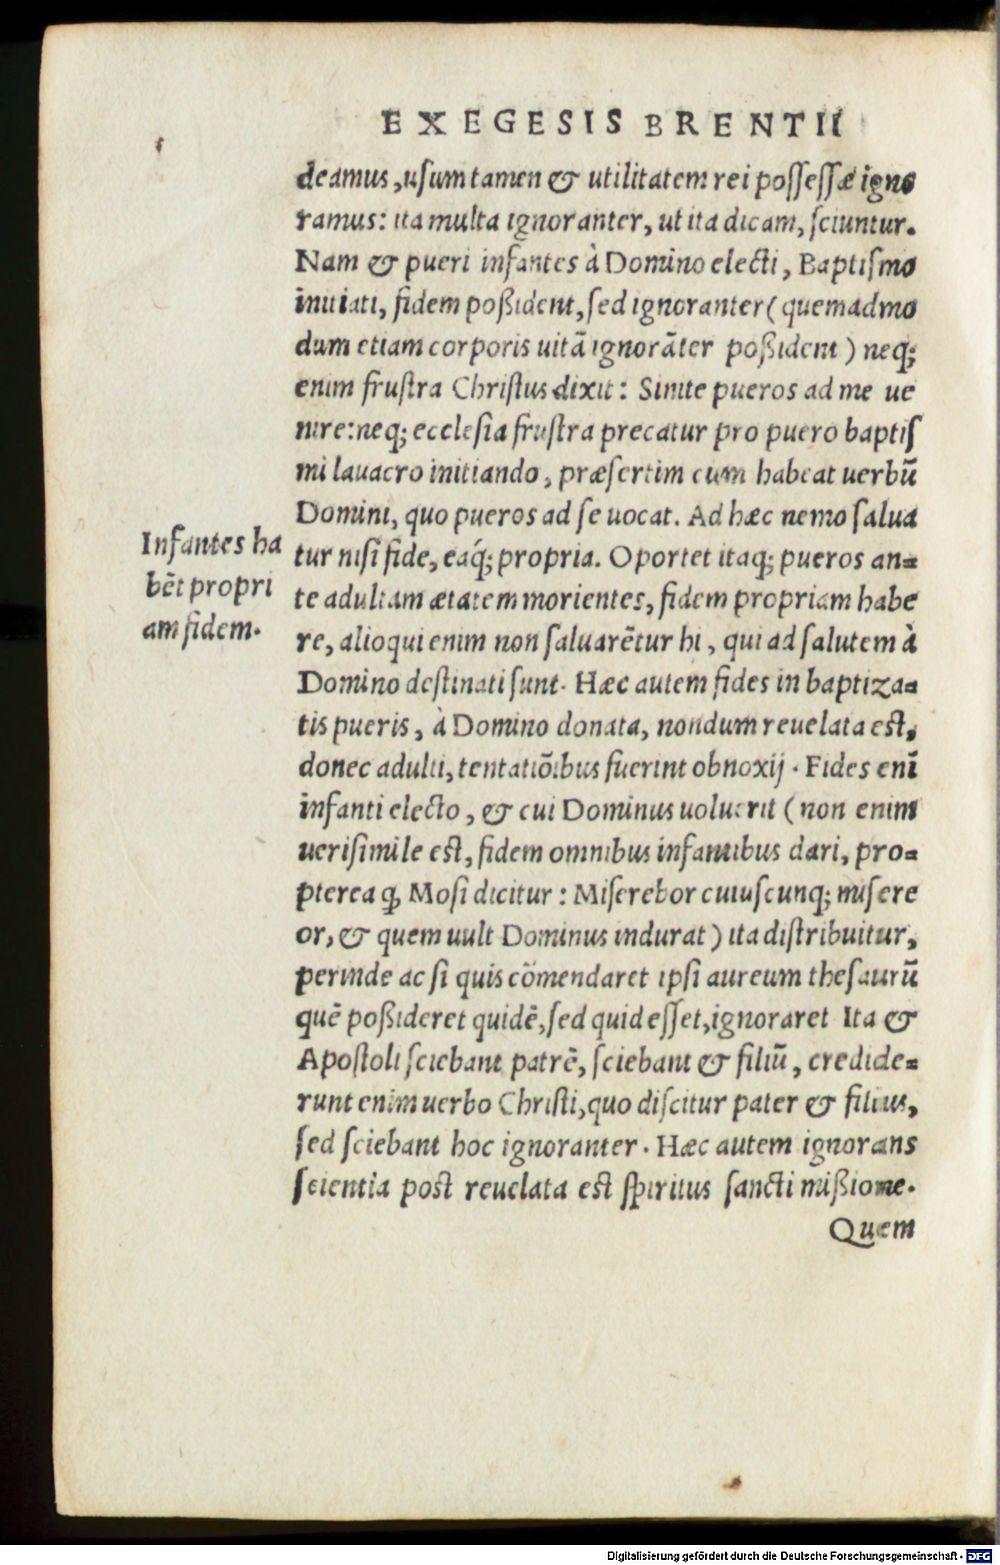 EXEGESIS BRENTII
deamus, uſum tamen & utilitatem rei poſſeſſæ igno
ramus: ita multa ignoranter, ut ita dicam, ſciuntur.
Nam & pueri infantes à Domino electi, Baptiſmo
initiati, fidem poßident, ſed ignoranter (quemadmo
dum etiam corporis uitã ignorãter poßident) neq;
enim fruſtra Chriſtus dixit: Sinite pueros ad me ue
nire: neq; eccleſia fruſtra precatur pro puero baptiſ
mi lauacro initiando, præſertim cum habeat uerbũ
Domini, quo pueros ad ſe uocat. Ad hæc nemo ſalua
tur niſi fide, eaq́; propria. Oportet itaq; pueros an-
te adultam ætatem morientes, fidem propriam habe
re, alioqui enim non ſaluarẽtur hi, qui ad ſalutem à
Domino deſtinati ſunt. Hæc autem fides in baptiza-
tis pueris, à Domino donata, nondum reuelata eſt,
donec adulti, tentatiõibus fuerint obnoxij. Fides enĩ
infanti electo, & cui Dominus uoluerit (non enim
ueriſimile eſt, fidem omnibus infantibus dari, pro-
pterea q̃ Moſi dicitur: Miſerebor cuiuſcunq; miſere
or, & quem uult Dominus indurat) ita diſtribuitur,
perinde ac ſi quis cõmendaret ipſi aureum theſaurũ
quẽ poßideret quidẽ, ſed quid eſſet, ignoraret Ita &
Apoſtoli ſciebant patrẽ, ſciebant & filiũ, credide-
runt enim uerbo Chriſti, quo diſcitur pater & filius,
ſed ſciebant hoc ignoranter. Hæc autem ignorans
ſcientia poſt reuelata eſt ſpiritus ſancti mißione.
Quem
Infantes ha
bẽt propri
am fidem.
Digitalisierung gefördert durch die Deutsche Forschungsgemeinschaft - DFG